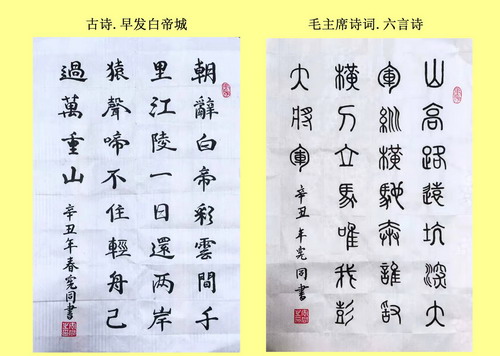 古诗.早发白帝城
朝辭白帝彩雲間千
里江陵一日還两岸
猿聲啼不住輕舟已
過萬重山
辛丑年春宪同書
毛主席诗词.六言诗
山高路遠坑深大
軍縱橫馳奔誰敢
橫刀立馬唯我彭
大將軍
辛丑年宪同書